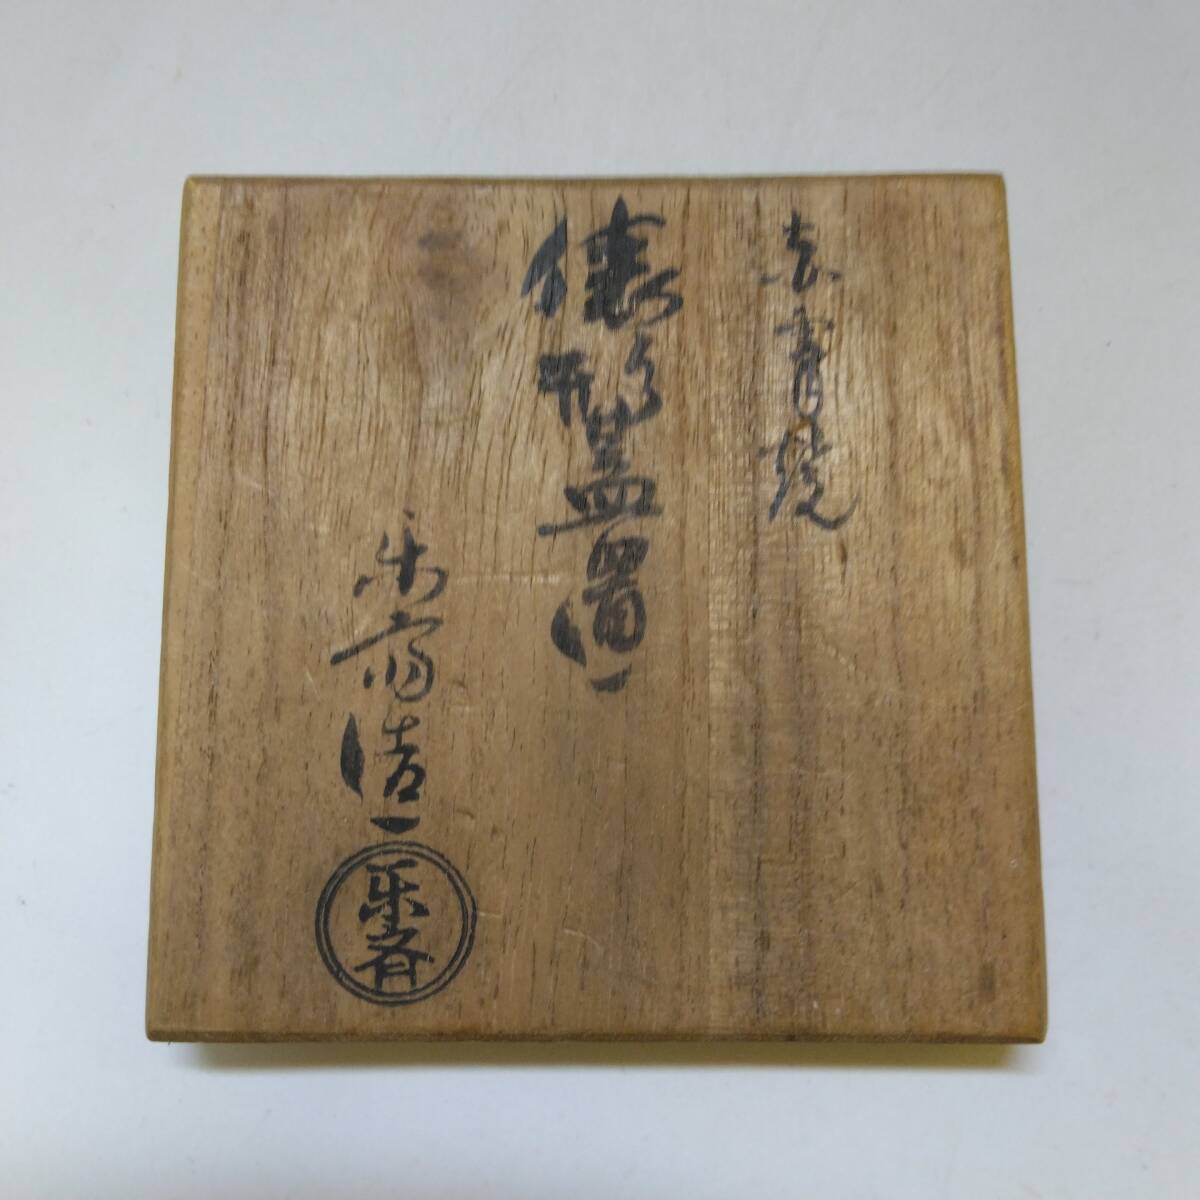 赤膚焼
俵形蓋置
楽斎造
楽斎